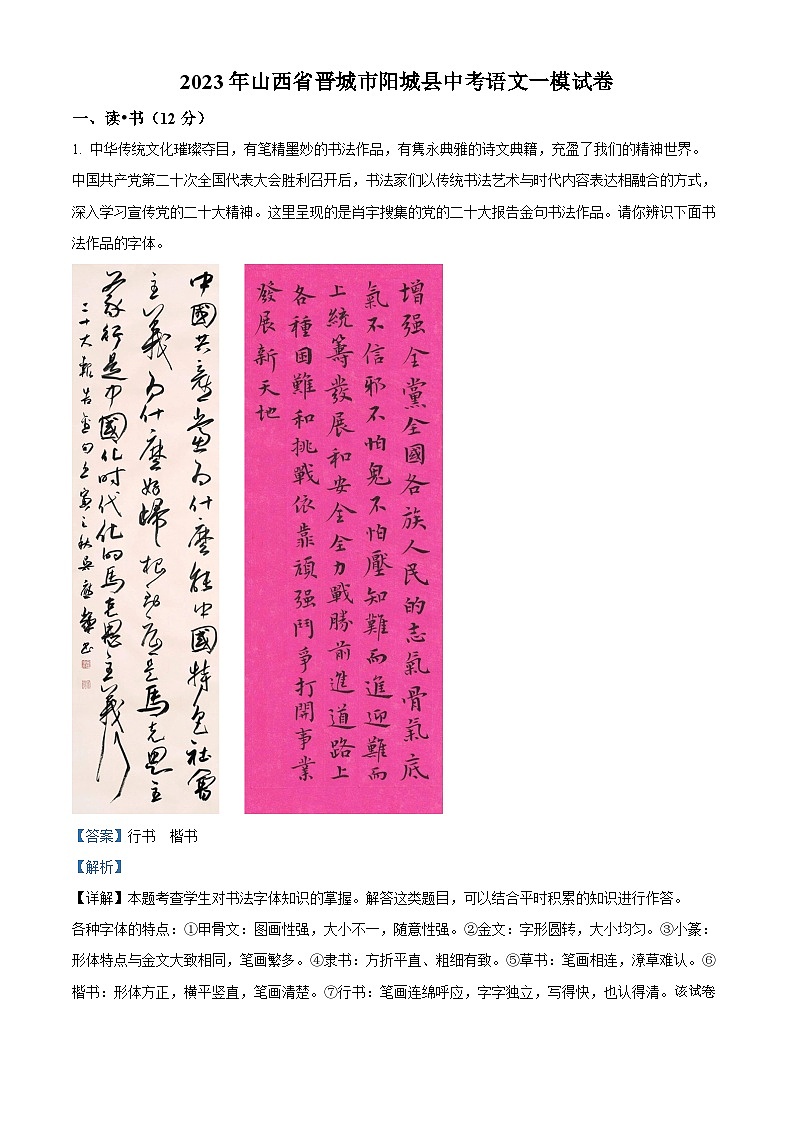 2023年山西省晋城市阳城县中考语文一模试卷
一、读•书（12分）
1. 中华传统文化璀璨夺目，有笔精墨妙的书法作品，有隽永典雅的诗文典籍，充盈了我们的精神世界。
中国共产党第二十次全国代表大会胜利召开后，书法家们以传统书法艺术与时代内容表达相融合的方式，
深入学习宣传党的二十大精神。这里呈现的是肖宇搜集的党的二十大报告金句书法作品。请你辨识下面书
法作品的字体。
中國共產黨为什麼能中國特色社會
主義为什麼好歸根到底是馬克思主
義行是中國化时代化的馬克思主義行
二十大報告金句壬寅之秋吴
增强全黨全國各族人民的志氣骨氣底
氣不信邪不怕鬼不怕壓知難而進迎難而
上統籌發展和安全全力戰勝前進道路上
各種困難和挑戰依靠頑强鬥爭打開事業
發展新天地
【答案】行书 楷书
【解析】
【详解】本题考查学生对书法字体知识的掌握。解答这类题目，可以结合平时积累的知识进行作答。
各种字体的特点：①甲骨文：图画性强，大小不一，随意性强。②金文：字形圆转，大小均匀。③小篆：
形体特点与金文大致相同，笔画繁多。④隶书：方折平直、粗细有致。⑤草书：笔画相连，潦草难认。⑥
楷书：形体方正，横平竖直，笔画清楚。⑦行书：笔画连绵呼应，字字独立，写得快，也认得清。该试卷